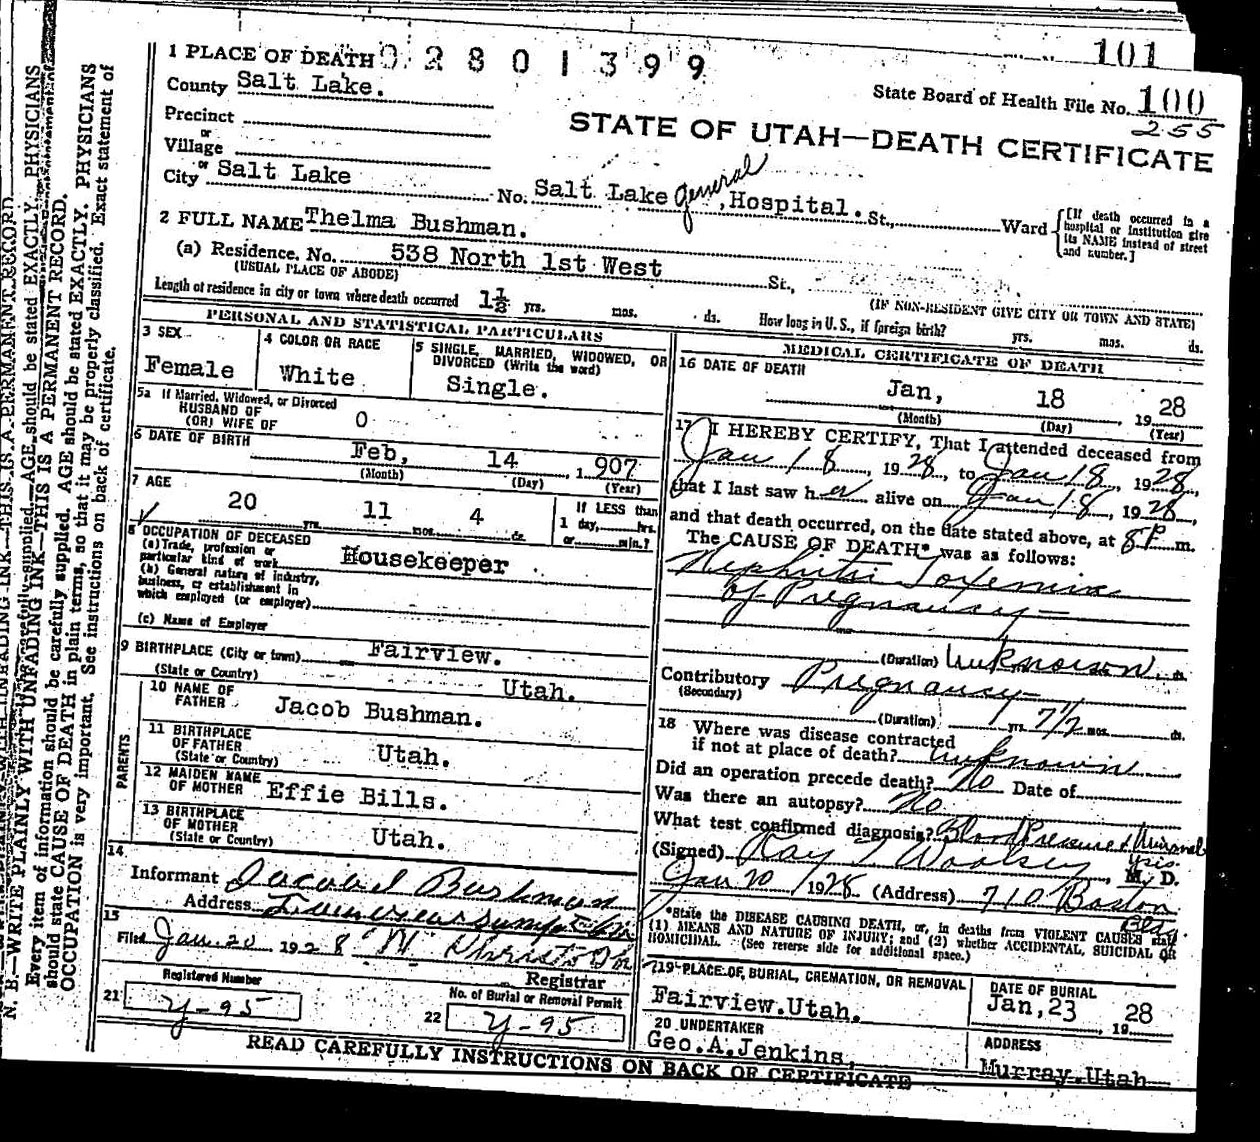 101
1 PLACE OF DEATH 02801399
State Board of Health File No. 100
255
County Salt Lake.
STATE OF UTAH—DEATH CERTIFICATE
Precinct
or
Village
or
City Salt Lake No. Salt Lake General, Hospital. St., Ward
[If death occurred in a hospital or institution give its NAME instead of street and number.]
2 FULL NAME Thelma Bushman.
(a) Residence. No. 538 North 1st West St.,
(USUAL PLACE OF ABODE)
(IF NON-RESIDENT GIVE CITY OR TOWN AND STATE)
Length of residence in city or town where death occurred 1½ yrs. mos. ds. How long in U. S., if foreign birth? yrs. mos. ds.
PERSONAL AND STATISTICAL PARTICULARS
3 SEX
Female
4 COLOR OR RACE
White
5 SINGLE, MARRIED, WIDOWED, OR
DIVORCED (Write the word)
Single.
5a If Married, Widowed, or Divorced
HUSBAND OF
(OR) WIFE OF 0
6 DATE OF BIRTH Feb, 14 1907
(Month) (Day) (Year)
7 AGE
20 yrs. 11 mos. 4 ds.
If LESS than
1 day, hrs.
or min.?
8 OCCUPATION OF DECEASED
(a) Trade, profession or
particular kind of work Housekeeper
(b) General nature of industry,
business, or establishment in
which employed (or employer)
(c) Name of Employer
9 BIRTHPLACE (City or town) Fairview.
(State or Country) Utah.
PARENTS
10 NAME OF
FATHER Jacob Bushman.
11 BIRTHPLACE
OF FATHER
(State or Country) Utah.
12 MAIDEN NAME
OF MOTHER Effie Bills.
13 BIRTHPLACE
OF MOTHER
(State or Country) Utah.
14
Informant Jacob Bushman
Address
15
Filed Jan. 20 1928
Registrar
Registered Number
21 Y-95
No. of Burial or Removal Permit
22 Y-95
MEDICAL CERTIFICATE OF DEATH
16 DATE OF DEATH
Jan, 18 1928
(Month) (Day) (Year)
17 I HEREBY CERTIFY, That I attended deceased from
Jan 18, 1928, to Jan 18, 1928,
that I last saw her alive on Jan 18, 1928,
and that death occurred, on the date stated above, at 8 P. m.
The CAUSE OF DEATH* was as follows:
Nephritic Toxemia
of Pregnancy—
(Duration) Unknown ds.
Contributory Pregnancy
(Secondary)
(Duration) yrs. 7½ mos. ds.
18 Where was disease contracted
if not at place of death? Unknown
Did an operation precede death? No Date of
Was there an autopsy? No
What test confirmed diagnosis? Blood Pressure & Urinalysis.
(Signed) Ray T Woolsey, M. D.
Jan 20, 1928 (Address) 710 Boston Bldg.
*State the DISEASE CAUSING DEATH, or, in deaths from VIOLENT CAUSES state
(1) MEANS AND NATURE OF INJURY; and (2) whether ACCIDENTAL, SUICIDAL OR
HOMICIDAL. (See reverse side for additional space.)
19 PLACE OF BURIAL, CREMATION, OR REMOVAL
Fairview.Utah.
DATE OF BURIAL
Jan,23 1928
20 UNDERTAKER
Geo.A.Jenkins,
ADDRESS
Murray.Utah
READ CAREFULLY INSTRUCTIONS ON BACK OF CERTIFICATE
N. B.—WRITE PLAINLY WITH UNFADING INK—THIS IS A PERMANENT RECORD.
Every item of information should be carefully supplied. AGE should be stated EXACTLY. PHYSICIANS
should state CAUSE OF DEATH in plain terms, so that it may be properly classified. Exact statement of
OCCUPATION is very important. See instructions on back of certificate.